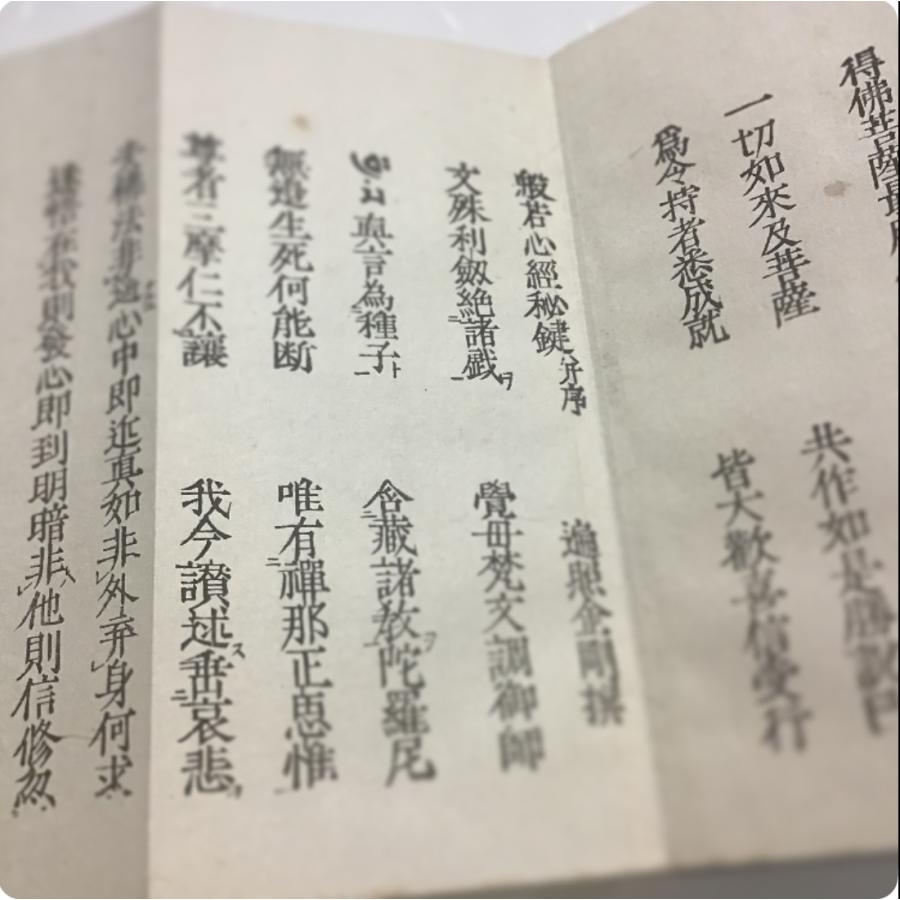 得佛菩薩最勝
共作如是勝説已
一切如來及菩薩
皆大歡喜信受行
爲令持者悉成就
般若心經秘鍵并序
遍照金剛撰
文殊利劔絶諸戯ヲ一
覺母梵文調御師
真言為種子ト一
含藏諸教ヲ陀羅尼
無邊生死何能断
唯有禪那正思惟
尊者三摩仁不讓
我今讃述垂哀悲
夫佛法非遥心中即近真如非外弃身何求
迷悟在我則發心即到明暗非他則信修忽